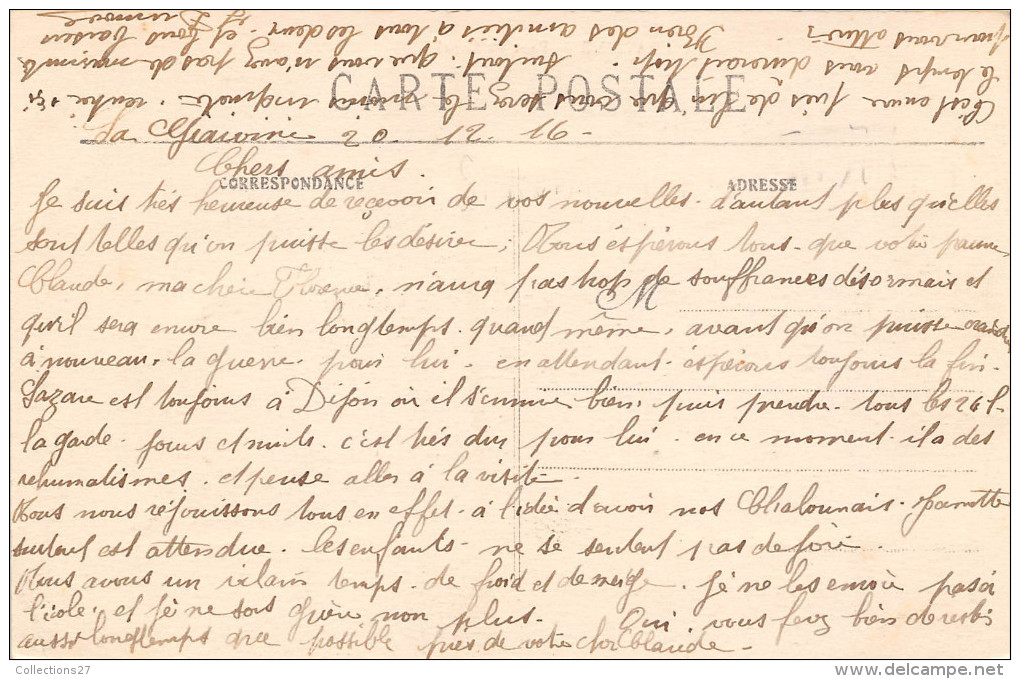 CARTE POSTALE
La 20 - 12 - 16 -
Chers amis.
CORRESPONDANCE
ADRESSE
Je suis très heureuse de reçevoir de vos nouvelles. d'autant plus qu'elles
sont telles qu'on puisse les désirer, Nous éspérons tous - que votre pauvre
Claude, ma chère n'aura pas trop de souffrances désormais et
qu'il sera encore bien longtemps. quand même, avant qu'on puisse
à nouveau. la guerre. pour lui. en attendant. espérons toujours la fin.
Lazare est toujours à Dijon où il s'ennuie bien, puis prendre. tous les 2 j.
la garde. jours et nuits. c'est très dur pour lui. en ce moment. il a des
rehumatismes. et pense aller à la visite.
Nous nous réjouissons tous en effet. à l'idée d'avoir nos Chalonnais.
surtout est attendue. les enfants. ne se sentent pas de joie.
Nous avons un vilain temps. de froid et de neige. Je ne les envoie pas à
l'école, et je ne sors guère non plus. Oui, vous ferez bien de rester
aussi longtemps que possible près de votre cher Claude.
C'est encore près de lui que vous serez le moins inquiets.
le temps vous durerait trop. surtout. que vous n'avez pas de
pour vous Bien des amitiés à tous les deux. et bons baisers
Collections27